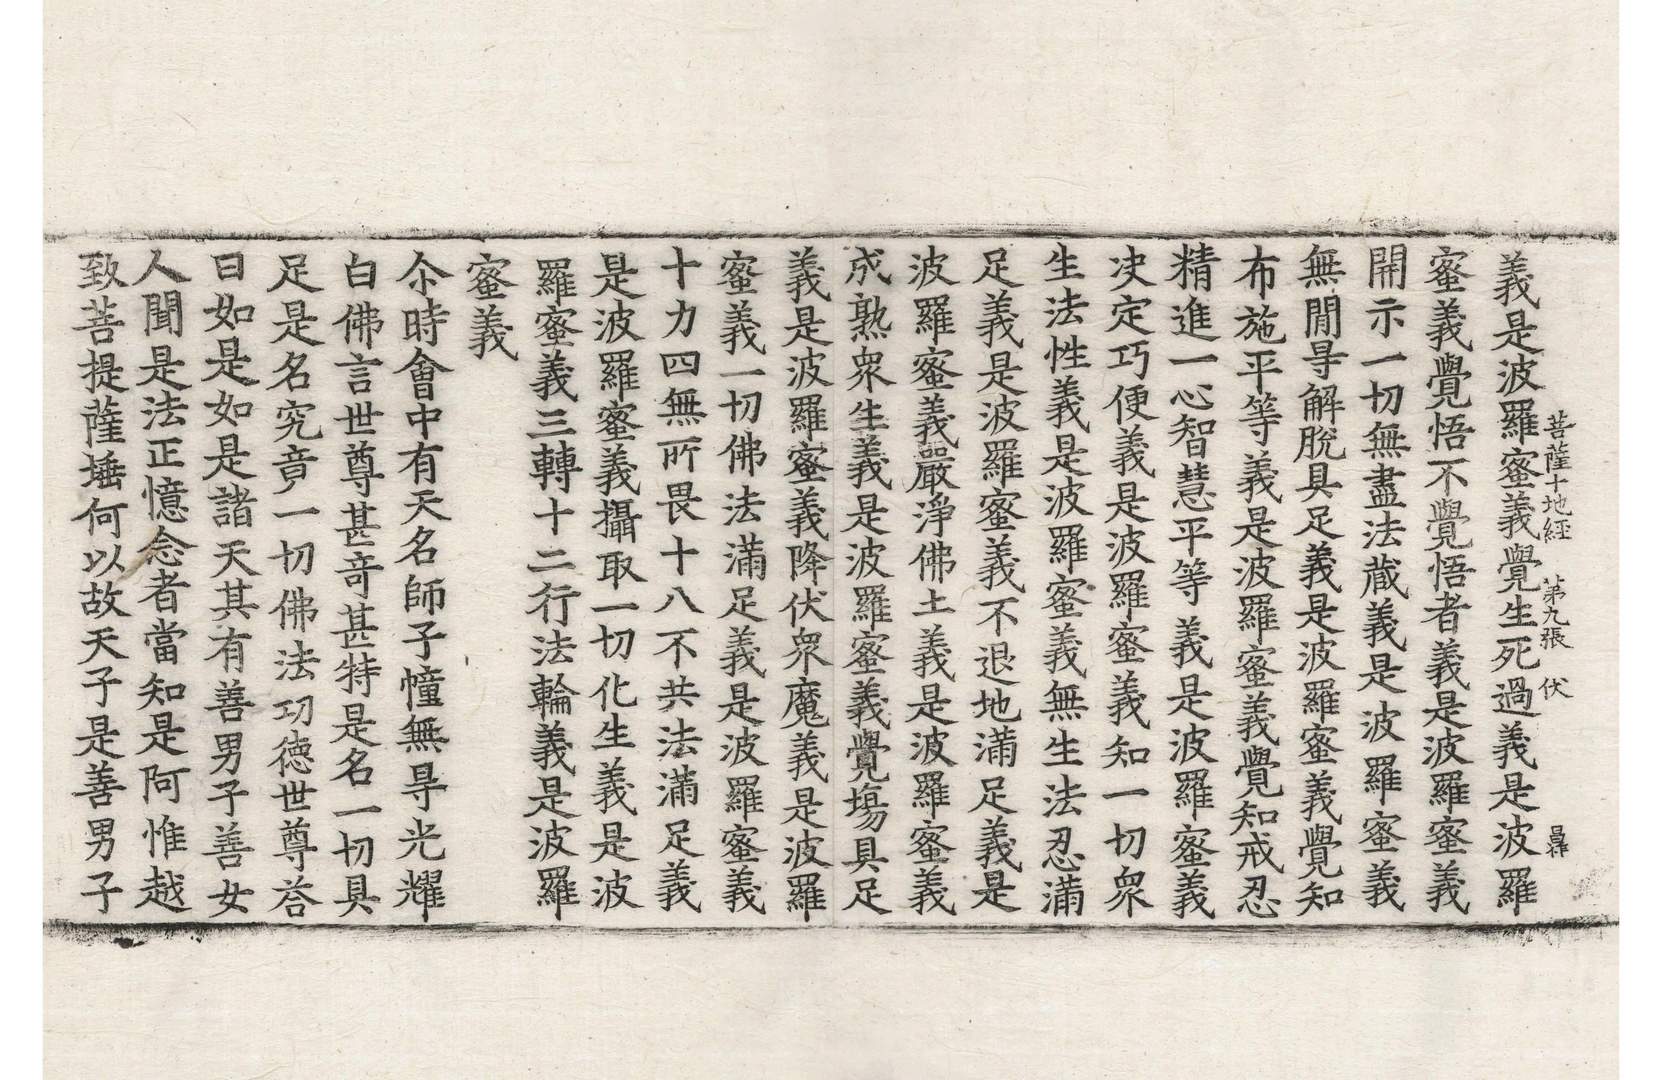 菩薩十地經 第九張 伏
義是波羅蜜義覺生死過義是波羅
蜜義覺悟不覺悟者義是波羅蜜義
開示一切無盡法蔵義是波羅蜜義
無閒㝵解脫具足義是波羅蜜義覺知
布施平等義是波羅蜜義覺知戒忍
精進一心智慧平等義是波羅蜜義
决定巧便義是波羅蜜義知一切衆
生法性義是波羅蜜義無生法忍滿
足義是波羅蜜義不退地滿足義是
波羅蜜義嚴淨佛土義是波羅蜜義
成熟衆生義是波羅蜜義覺塲具足
義是波羅蜜義降伏衆魔義是波羅
蜜義一切佛法滿足義是波羅蜜義
十力四無所畏十八不共法滿足義
是波羅蜜義攝取一切化生義是波
羅蜜義三轉十二行法輪義是波羅
蜜義
尒時會中有天名師子幢無㝵光耀
白佛言世尊甚竒甚特是名一切具
足是名究竟一切佛法功德世尊荅
曰如是如是諸天其有善男子善女
人聞是法正憶念者當知是阿惟越
致菩提薩埵何以故天子是善男子